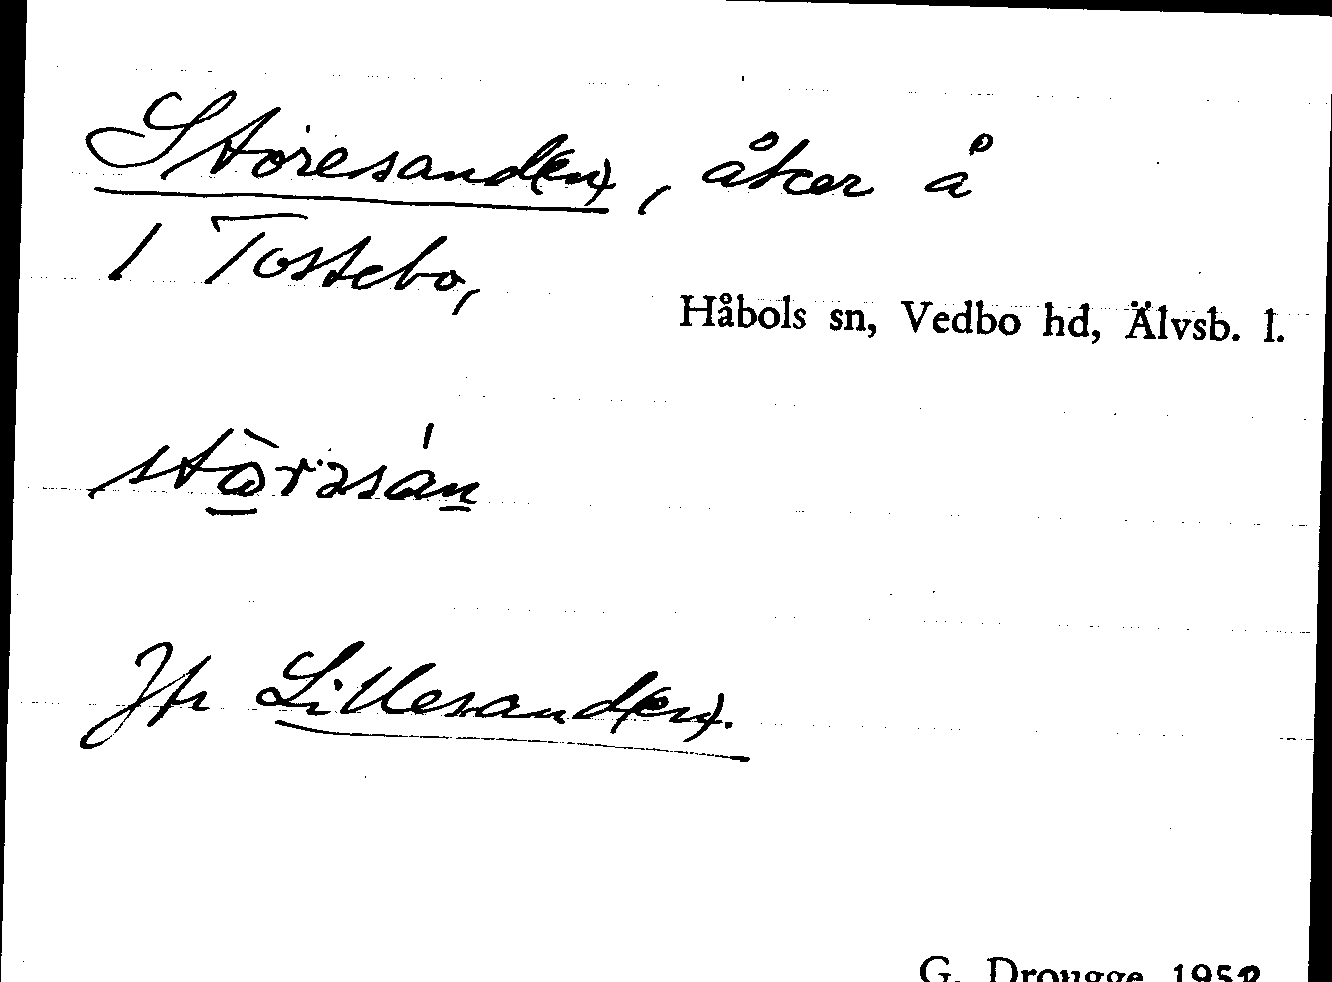 Storesand(en), åker å
1 Tostebo,
Håbols sn, Vedbo hd, Älvsb. l.
Jfr Lillesand(en).
G. Drougge 1952